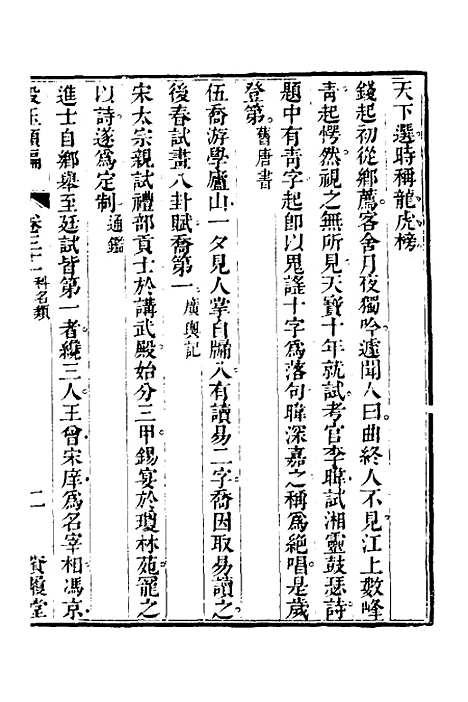 天下選時稱龍虎榜
錢起初從鄉薦客舍月夜獨吟遽聞人曰曲終人不見江上數峰
青起愕然視之無所見天寶十年就試考官李暐試湘靈鼓瑟詩
題中有靑字起卽以鬼謠十字爲落句暐深嘉之稱爲絶唱是歲
登第舊唐書
伍喬游學廬山一夕見人掌自牖入有讀易二字喬因取易讀之
後春試畫八卦賦喬第一廣輿記
宋太宗親試禮部貢士於講武殿始分三甲錫宴於瓊林苑寵之
以詩遂爲定制通鑑
進士自鄉舉至廷試皆第一者纔三人王曾宋庠爲名宰相馮京
卷三十一科名類 二